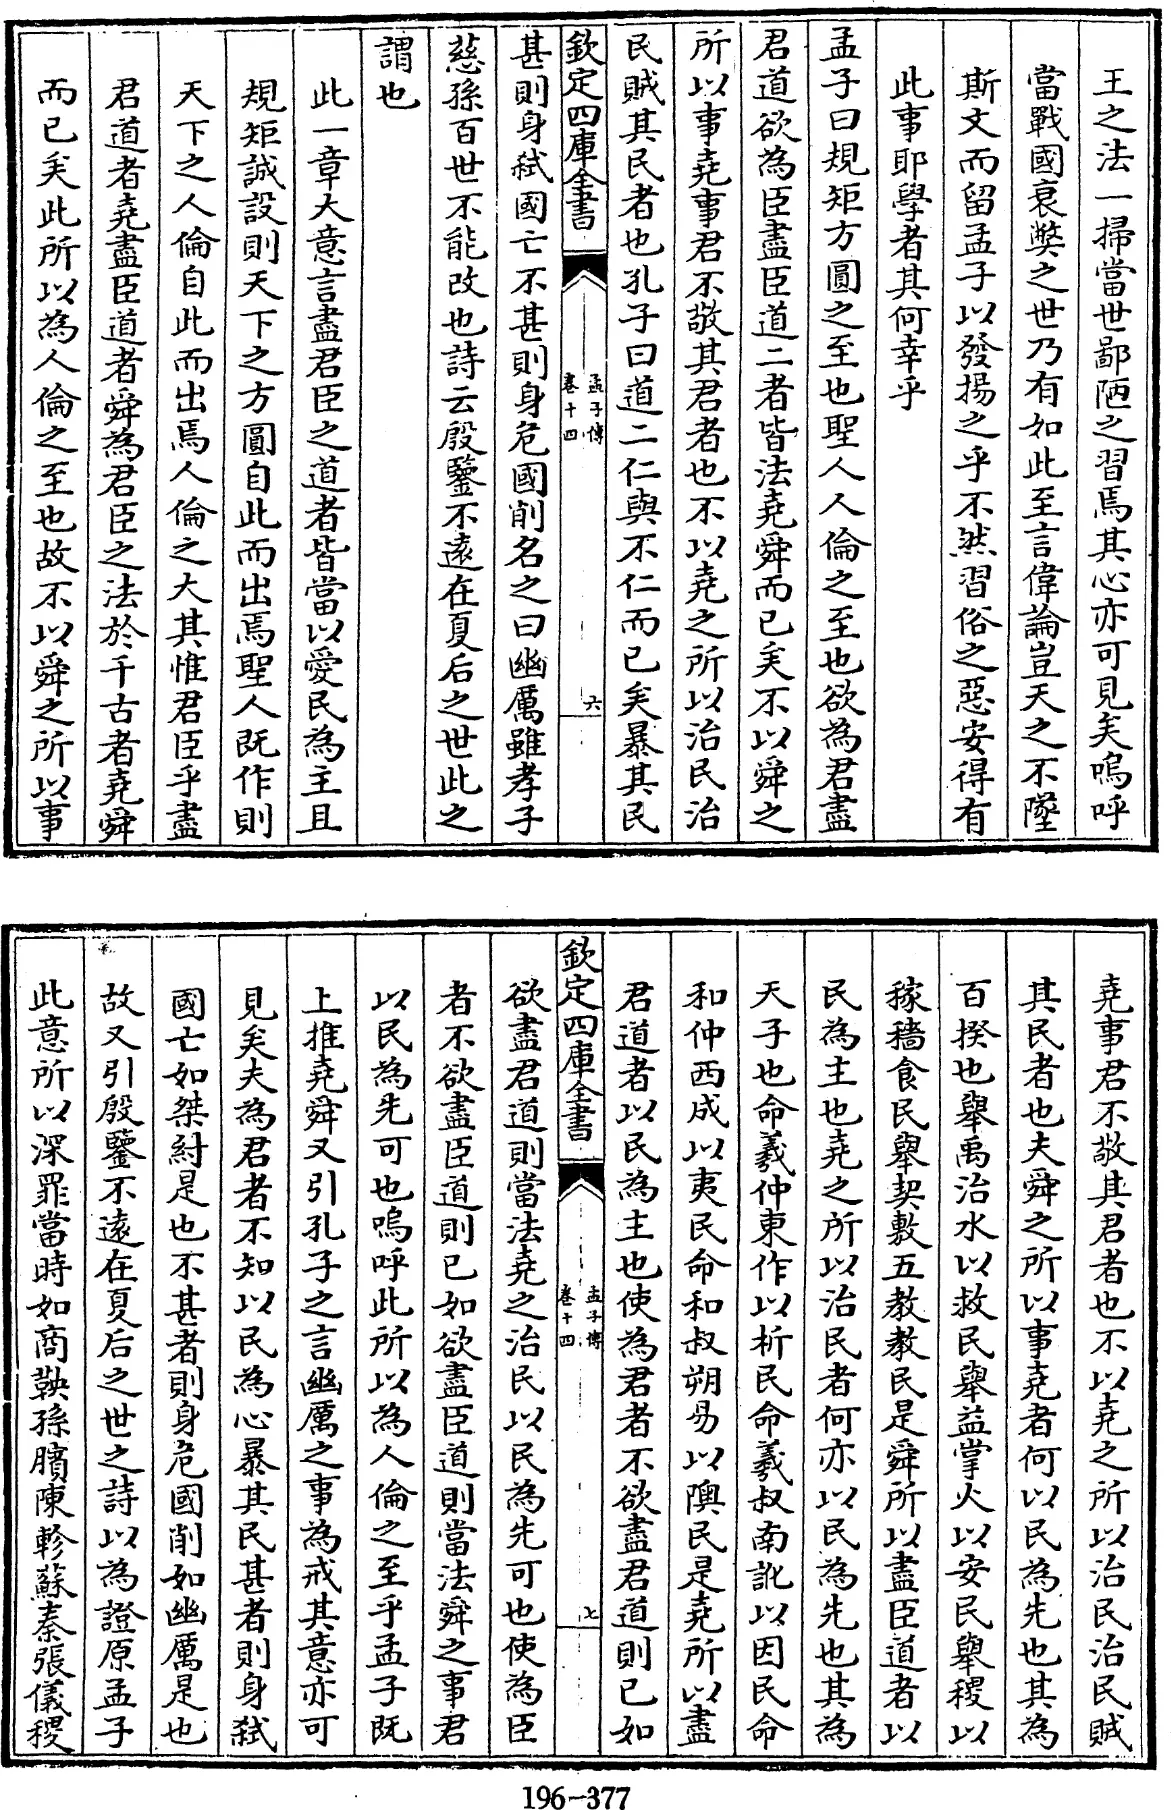 王之法一掃當世鄙陋之習焉其心亦可見矣嗚呼
當戰國衰獘之世乃有如此至言偉論豈天之不墜
斯文而留孟子以發揚之乎不然習俗之惡安得有
此事耶學者其何幸乎
孟子曰規矩方圓之至也聖人人倫之至也欲為君盡
君道欲為臣盡臣道二者皆法堯舜而已矣不以舜之
所以事堯事君不敬其君者也不以堯之所以治民治
民賊其民者也孔子曰道二仁與不仁而已矣暴其民
欽定四庫全書
孟子傳
卷十四
六
甚則身弑國亡不甚則身危國削名之曰幽厲雖孝子
慈孫百世不能改也詩云殷鑒不遠在夏后之世此之
謂也
此一章大意言盡君臣之道者皆當以愛民為主且
規矩誠設則天下之方圓自此而出焉聖人既作則
天下之人倫自此而出焉人倫之大其惟君臣乎盡
君道者堯盡臣道者舜為君臣之法於千古者堯舜
而已矣此所以為人倫之至也故不以舜之所以事
堯事君不敬其君者也不以堯之所以治民治民賊
其民者也夫舜之所以事堯者何以民為先也其為
百揆也舉禹治水以救民舉益掌火以安民舉稷以
稼穡食民舉契敷五教教民是舜所以盡臣道者以
民為主也堯之所以治民者何亦以民為先也其為
天子也命羲仲東作以析民命羲叔南訛以因民命
和仲西成以夷民命和叔朔易以隩民是堯所以盡
君道者以民為主也使為君者不欲盡君道則已如
欽定四庫全書
孟子傳
卷十四
七
欲盡君道則當法堯之治民以民為先可也使為臣
者不欲盡臣道則已如欲盡臣道則當法舜之事君
以民為先可也嗚呼此所以為人倫之至乎孟子既
上推堯舜又引孔子之言幽厲之事為戒其意亦可
見矣夫為君者不知以民為心暴其民甚者則身弑
國亡如桀紂是也不甚者則身危國削如幽厲是也
故又引殷鑒不遠在夏后之世之詩以為證原孟子
此意所以深罪當時如商鞅孫臏陳軫蘇秦張儀稷
196-377